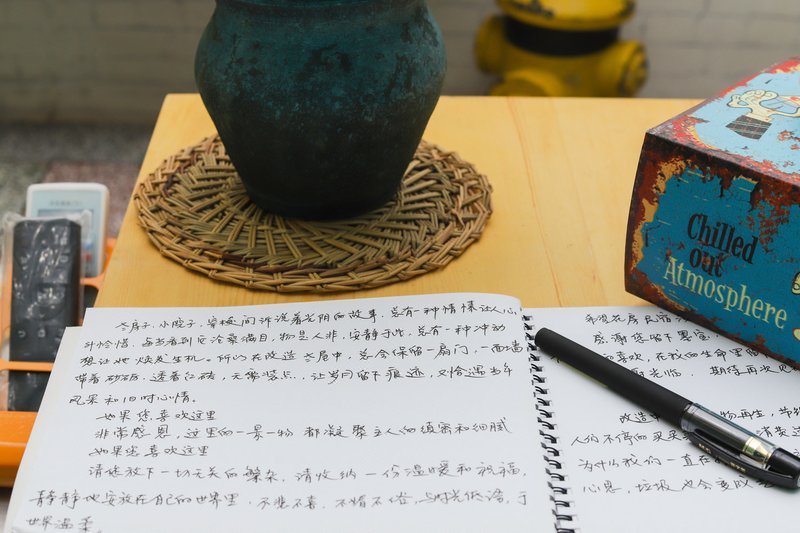 老房子，小院子，穿越时间诉说着光阴的故事，总有一种情愫让人心
外恰惜，每当看到它沧桑满目，物是人非，安静于此，总有一种冲动
想让她焕发生机。所以在改造老房中，总会保留一扇门，一面墙
带着砂砾，透着红砖，无需装点，让岁月留下痕迹，又恰遇当年
风采和旧时心情。
如果您喜欢这里
非常感恩，这里的一景一物都凝聚主人的缜密和细腻
如果您喜欢这里
请您放下一切无关的繁杂，请收纳一份温暖和祝福，
静静地安放在自己的世界里，不悲不喜，不惰不俗，与时光低语，于
世界温柔。
希望花房民宿
感谢您留下思宝
和喜欢，在我的生命里的
光临，期待再次见
改造中 物再生，
人们不停的买买 消费
为什么我们一直在
心思，垃圾也会变成
Chilled
out
Atmosphere